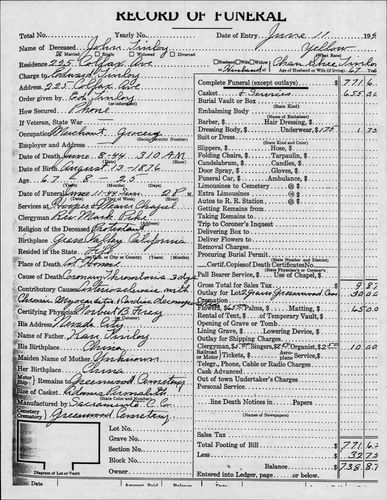 RECORD OF FUNERAL
Total No. Yearly No. Date of Entry June 11 19
Name of Deceased John Tinloy Yellow
Married Single Widowed Divorced (What Race)
Residence 225 Colfax Ave Husband Wife Widow or Chan Shee Tinloy
Charge to Edward Tinloy Husband Age of Husband or Wife (if living) 67 Years
Address 225 Colfax Ave Complete Funeral (except outlays) $ 771 6
Order given by Ed Tinloy Casket & Services 655 0
How Secured Phone Burial Vault or Box
(State Kind)
If Veteran, State War Embalming Body
(Name of Embalmer)
Occupation Merchant Grocery Barber, $ Hair Dressing, $
Employer and Address Dressing Body, $ Underwear, $ 1.75 1 75
Suit or Dress
(State Kind and Color)
Date of Death June 8-44 310 AM Slippers, $ Hose, $
Date of Birth August 13-1876 Folding Chairs, $ Tarpaulin, $
Age 67 Candelabrum, $ Candles, $
Door Spray, $ Gloves, $
Funeral Car, $ Ambulance, $
Date of Funeral June 11-44 Sun. 2 P.M. Limousines to Cemetery @ $
Extra Limousines @ $
Services at Hooper & Chapel Autos to R. R. Station @ $
Getting Remains from
Clergyman Rev Mark Pike Taking Remains to
Religion of the Deceased Protestant Trip to Coroner's Inquest
Delivering Box to
Birthplace Grass Valley California Deliver Flowers to
Resided in the State Life Removal Charges
Place of Death At Home Procuring Burial Permit
Certif. Copies of Death Certificates No.
(State Physician's or Coroner's)
Cause of Death Coronary Thrombosis 3 days Pall Bearer Service, $ Use of Chapel, $
Contributory Causes Arteriosclerosis with Gross Total for Sales Tax $ 9 87
Chronic Myocarditis & Cardiac Outlay for Lot Greenwood 30 00
Cremation
Certifying Physician Flowers, $ 65.00 Palms, $ Matting, $ 65 00
His Address Nevada City Rental of Tent, $ of Temporary Vault, $
Opening of Grave or Tomb
Name of Father Tinloy Lining Grave, $ Lowering Device, $
His Birthplace China Outlay for Shipping Charges
Clergyman, $ Singers, $ Organist, $ 10 00
Maiden Name of Mother Unknown Railroad Motor / Tickets, $ Aeroplane Service, $
Her Birthplace China Telegr., Phone, Cable or Radio Charges
Cash Advanced
Remains to Greenwood Cemetery Out of town Undertaker's Charges
Size of Casket Personal Service
(State Color and Number)
Manufactured by Sacramento C. Co line Death Notices in Papers
Cemetery Crematory Greenwood Cemetery (Names of Newspapers)
Lot No.
Grave No. Sales Tax $
Section No. Total Footing of Bill $ 771 62
Less $ 32 75
Block No. Balance $ 738 87
Diagram of Lot or Vault Owner Entered into Ledger, page or below.
Date Amount Paid Balance Date Amount Paid Balance